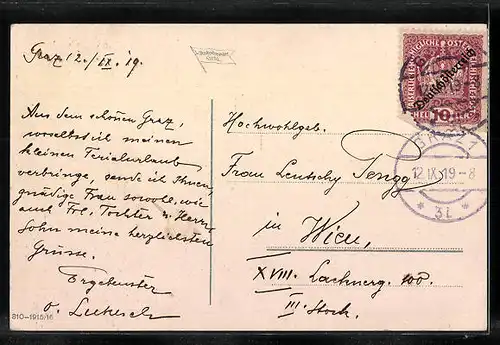 Graz 12./IX. 19.
Aus dem schönen Graz,
woselbst ich meinen
kleinen Ferialurlaub
verbringe, sende ich Ihnen,
gnädige Frau sowohl, wie
auch Frl. Tochter u. Herrn
Sohn meine herzlichsten
Grüsse.
Ergebenster
810-1915/16
Deutschösterreich
10
GRAZ 1
12.IX.19-8
* 3L *
Hochwohlgeb.
Frau
in Wien,
XVIII. 100.
III. Stock.